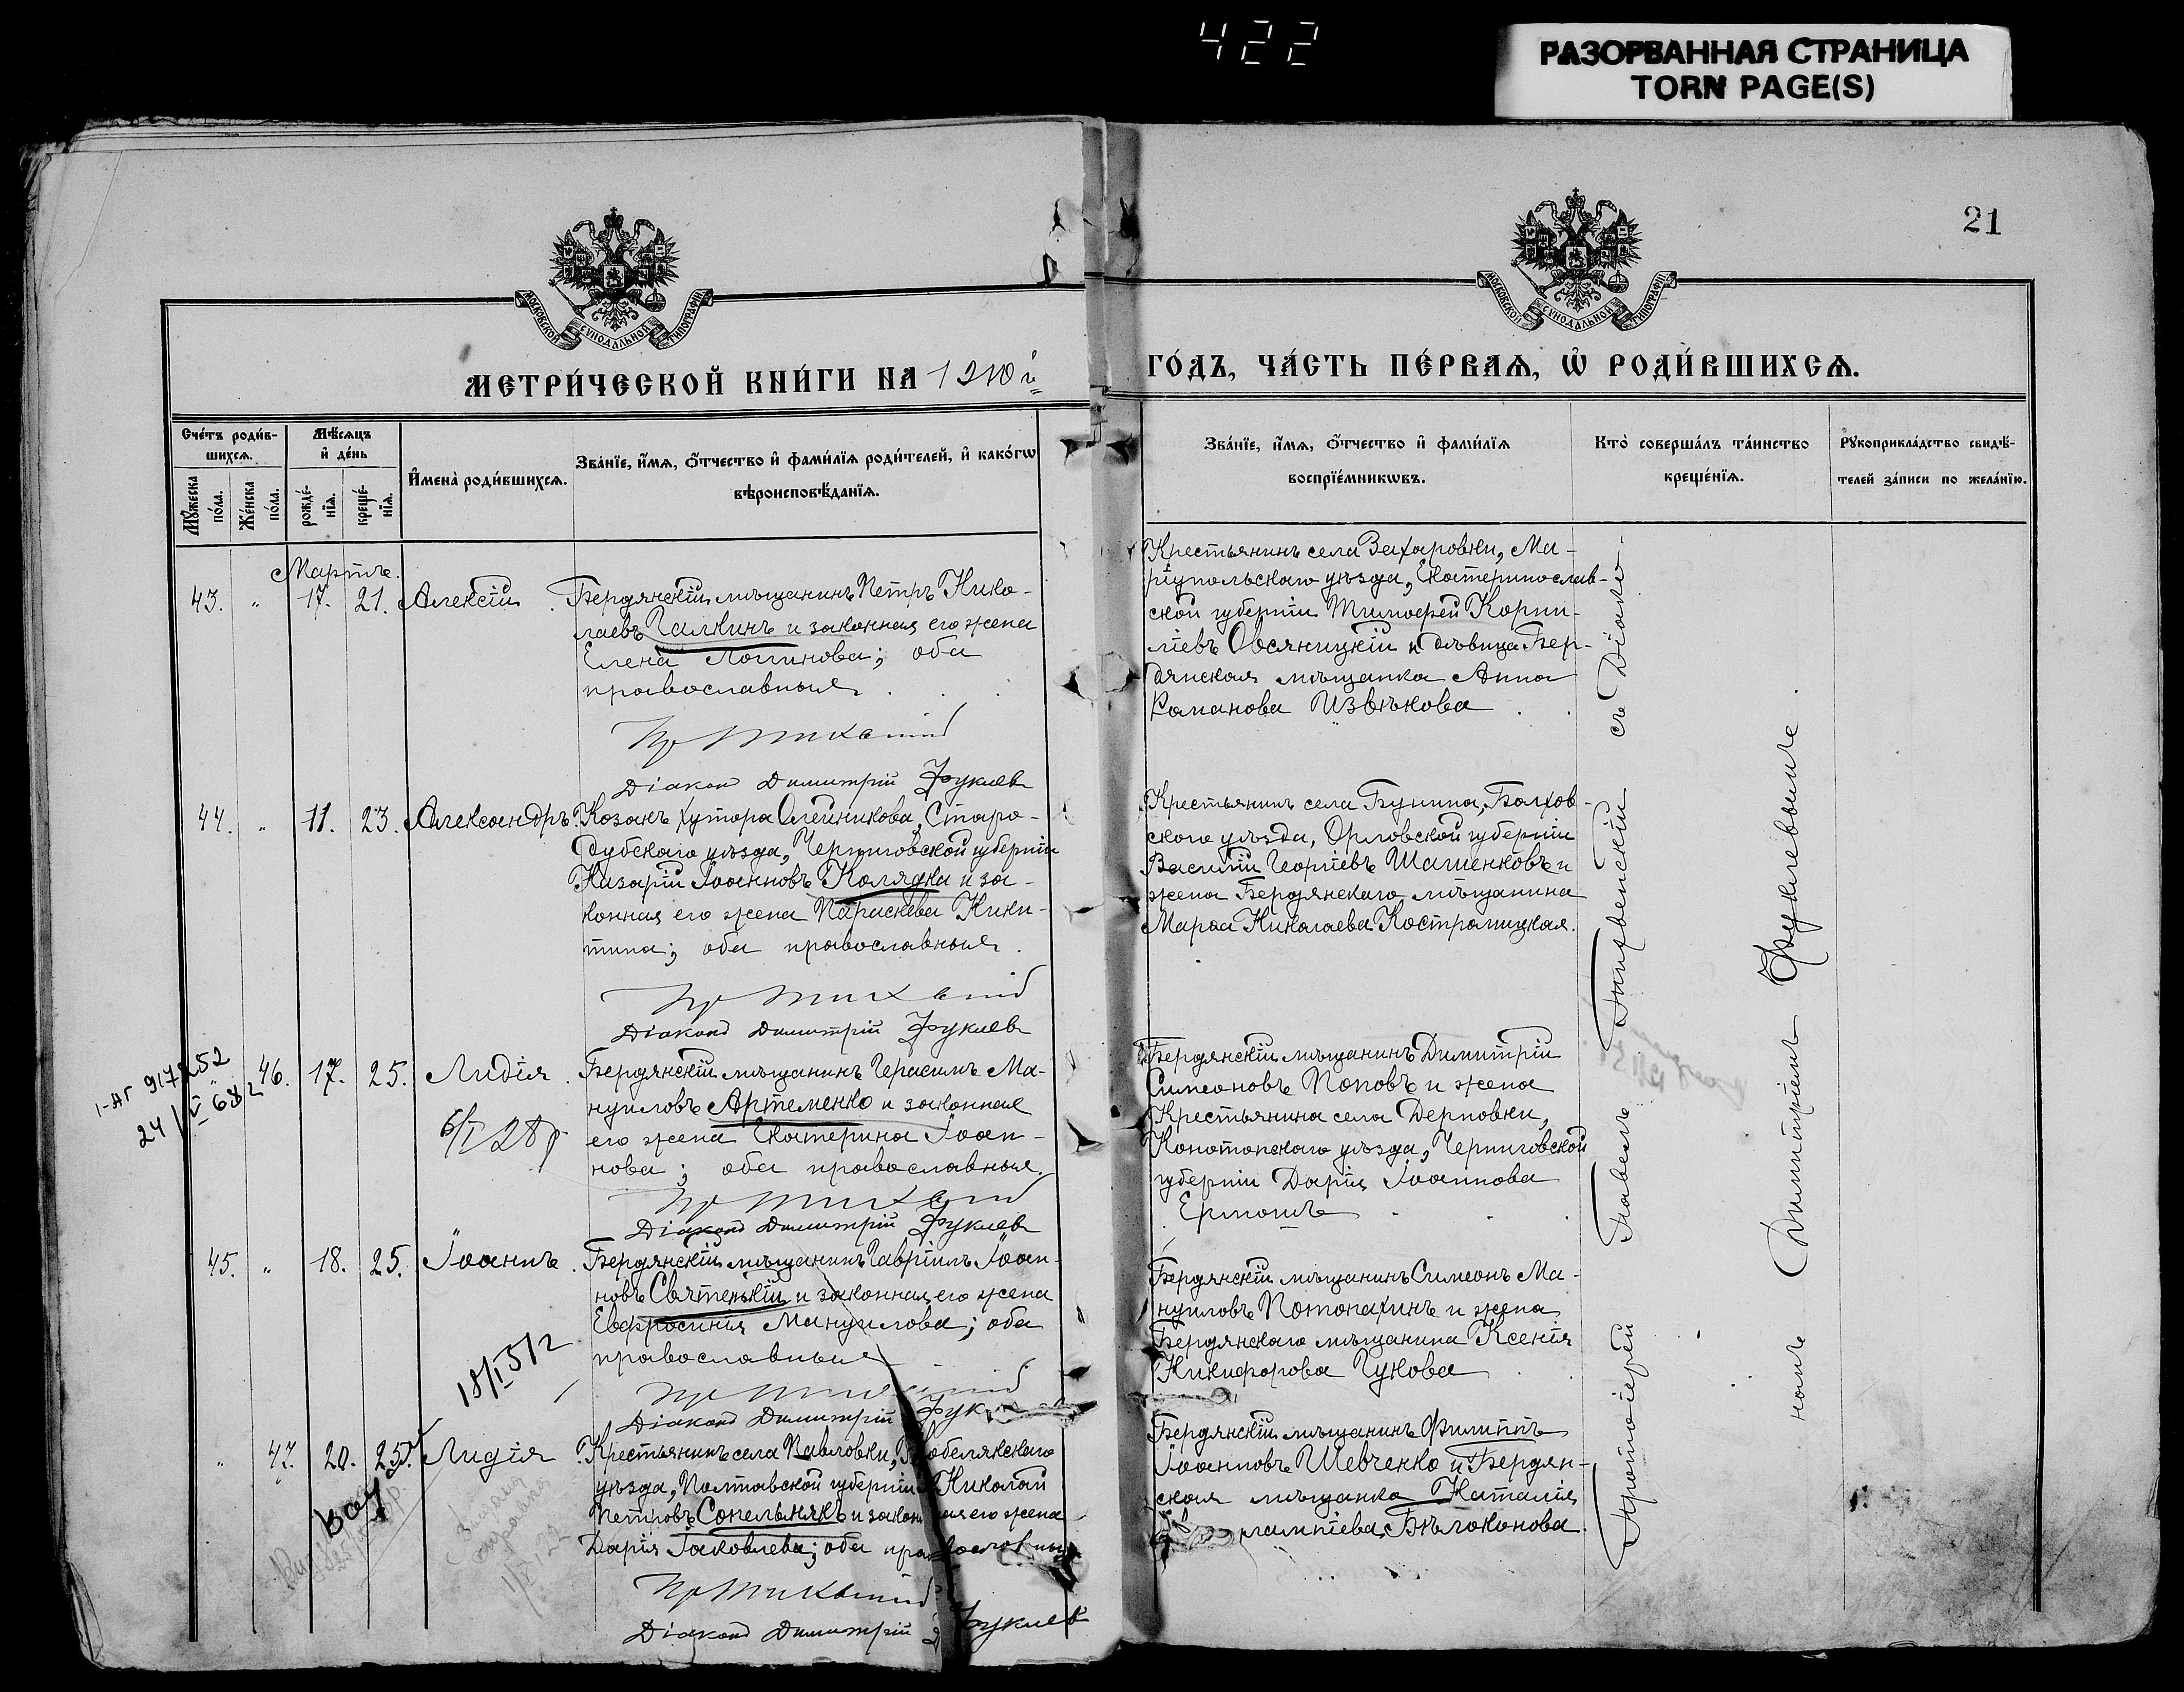 422
РАЗОРВАННАЯ СТРАНИЦА
TORN PAGE(S)
21
МОСКОВСКОЙ СѴНОДАЛЬНОЙ ТИПОГРАФІИ
МОСКОВСКОЙ СѴНОДАЛЬНОЙ ТИПОГРАФІИ
МЕТРИ́ЧЕСКОЙ КНИ́ГИ НА 1910й
ГО́ДЪ, ЧА́СТЬ ПЕ́РВАѦ, Ѽ РОДИ́ВШИХСѦ.
Сче́тъ роди́в-
шихсѧ.
Мѣ́сѧцъ
и҆ де́нь
Мꙋ́жеска
по́ла.
Же́нска
по́ла.
рожде́-
нїѧ.
креще́-
нїѧ.
И҆мена̀ роди́вшихсѧ.
Зва́нїе, и҆́мѧ, ѻ҆́тчество и҆ фамѝлїѧ роди́телей, и҆ како́гѡ
вѣроисповѣ́данїѧ.
Зва́нїе, и҆́мѧ, ѻ҆́тчество и҆ фами́лїѧ
воспрїе́мникѡвъ.
Кто̀ соверша́лъ та́инство
креще́нїѧ.
Рꙋкоприкла́дство свидѣ́-
телей за́писи по жела́нїю.
Мартъ.
43. " 17. 21. Алексій. Бердянскій мѣщанинъ Петръ Нико-
лаевъ Галкинъ и законная его жена
Елена Логинова; оба
православные.
Діаконъ Димитрій Фукиев
Крестьянинъ села Захаровки, Ма-
ріупольскаго уѣзда, Екатеринослав-
ской губерніи Тимофей Корни-
ліевъ Овсяницкій и дѣвица Бер-
дянская мѣщанка Анна
Романова Извѣкова
44. " 11. 23. Александръ. Козакъ хутора Олейникова, Старо-
дубскаго уѣзда, Черниговской губерніи
Назарій Іоанновъ Колядка и за-
конная его жена Параскева Ники-
тина; оба православные.
Діаконъ Димитрій Фукиев
Крестьянинъ села Бунина, Болхов-
ского уѣзда, Орловской губерніи
Василій Георгіевъ Шашенковъ и
жена Бердянскаго мѣщанина
Марѳа Николаева Костромицкая.
24/II 682
" 46. 17. 25. Лидія. Бердянскій мѣщанинъ Герасимъ Ма-
нуиловъ Артеменко и законная
его жена Екатерина Іоан-
нова; оба православные.
6/I 28 г
Діаконъ Димитрій Фукиев
Бердянскій мѣщанинъ Димитрій
Симеоновъ Поповъ и жена
Крестьянина села Дерновки,
Конотопскаго уѣзда, Черниговской
губерніи Дарія Іоаннова
Ермошъ
45. " 18. 25. Іоаннъ. Бердянскій мѣщанинъ Гавріилъ Іоан-
новъ Святенькій и законная его жена
Евфросинія Мануилова; оба
православные
18/I 512
Діаконъ Димитрій Фук
Бердянскій мѣщанинъ Симеонъ Ма-
нуиловъ Потопахинъ и жена
Бердянскаго мѣщанина Ксенія
Никифорова Гукова
" 47. 20. 25. Лидія. Крестьянинъ села Павловки, Кобелякскаго
уѣзда, Полтавской губерніи Николай
Петровъ Сопельнякъ и законная его жена
Дарія Іаковлева; оба православные
Діаконъ Димитрій Фукиев
Бердянскій мѣщанинъ Филиппъ
Іоанновъ Шевченко и Бердян-
ская мѣщанка Наталія
лампіева Бѣлоконова.
Протоіерей Павелъ съ Діако-
номъ Димитріемъ Фукиевымъ.